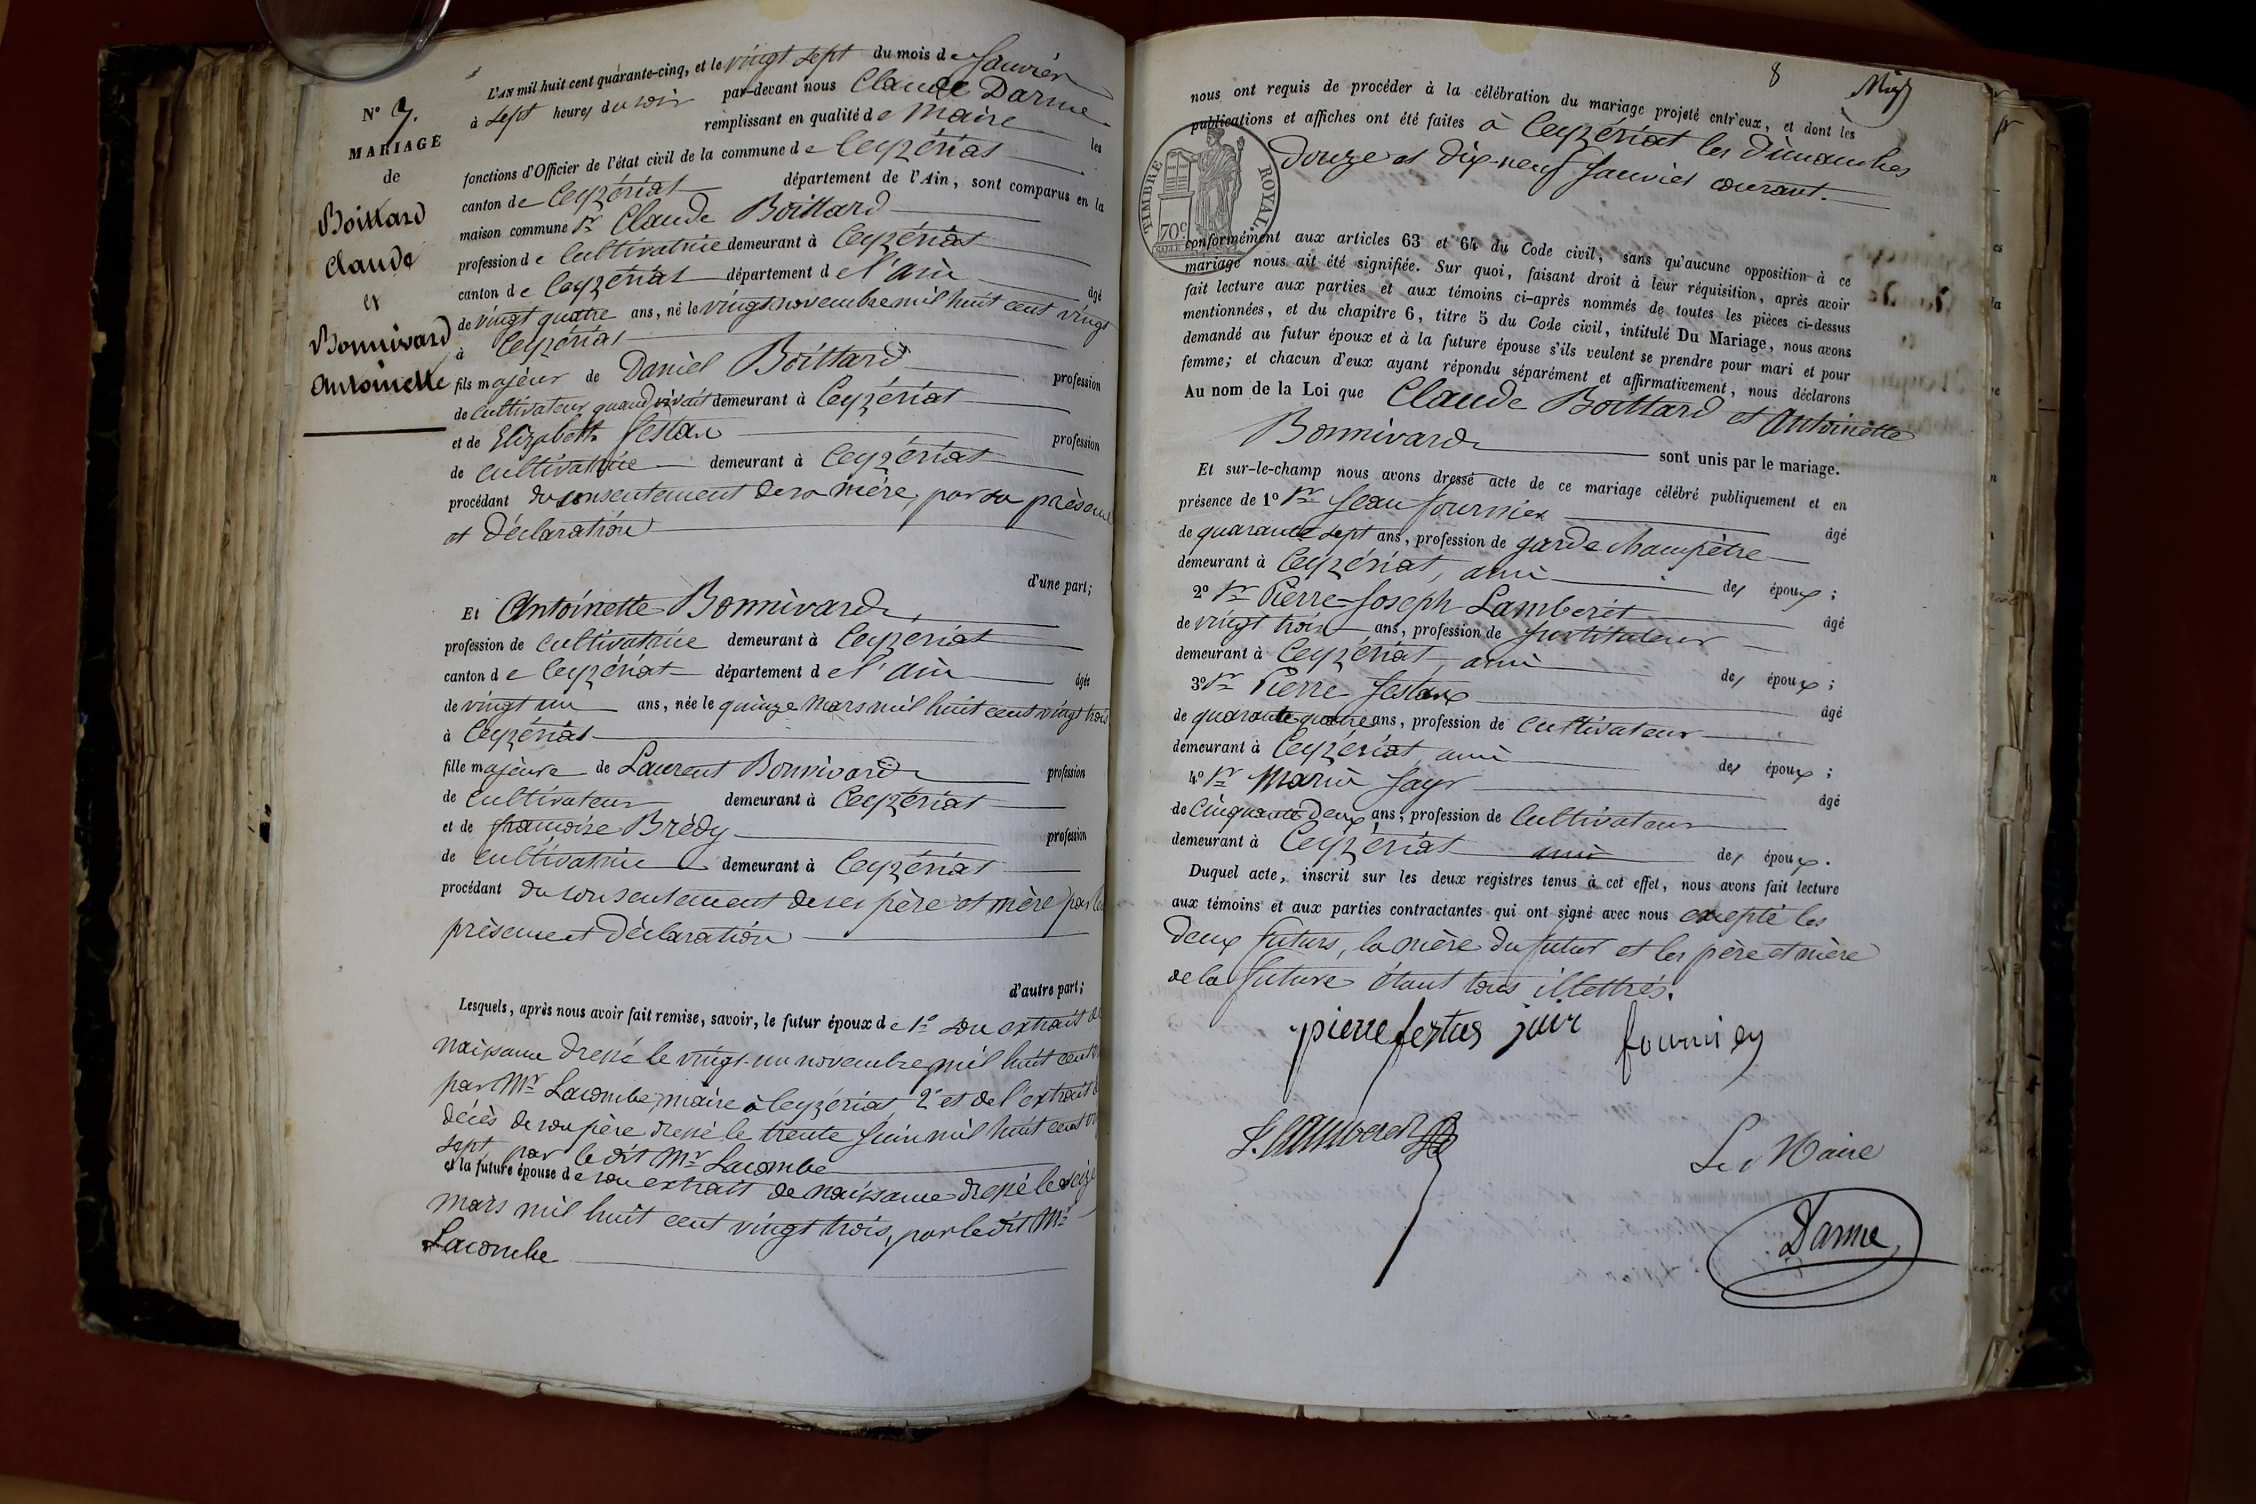 N° 7.
MARIAGE
de
Boittard
Claude
et
Bonnivard
Antoinette
L'AN mil huit cent quarante-cinq, et le vingt sept du mois de Janvier
à sept heures du soir par-devant nous Claude Darme
remplissant en qualité de Maire les
fonctions d'Officier de l'état civil de la commune de Ceyzériat
canton de Ceyzériat département de l'Ain, sont comparus en la
maison commune Sr Claude Boittard
profession de Cultivatrice demeurant à Ceyzériat
canton de Ceyzériat département de l'ain âgé
de vingt quatre ans, né le vingt novembre mil huit cent vingt
à Ceyzériat
fils majeur de Daniel Boittard profession
de cultivateur quand vivait demeurant à Ceyzériat
et de Elizabeth Festau profession
de cultivatrice demeurant à Ceyzériat
procédant du consentement de sa mère, par sa présence
et déclaration
d'une part;
Et Antoinette Bonnivard
profession de cultivatrice demeurant à Ceyzériat
canton de Ceyzériat département de l'ain âgée
de vingt un ans, née le quinze mars mil huit cent vingt trois
à Ceyzériat
fille majeure de Laurent Bonnivard profession
de cultivateur demeurant à Ceyzériat
et de françoise Brédy profession
de cultivatrice demeurant à Ceyzériat
procédant du consentement de ses père et mère par leur
présence et déclaration
d'autre part;
Lesquels, après nous avoir fait remise, savoir, le futur époux de 1° son extrait de
naissance dressé le vingt-un novembre mil huit cent
par Mr Lacombe, maire à Ceyzériat 2° et de l'extrait de
décès de son père dressé le trente juin mil huit cent
sept par le dit Mr Lacombe
et la future épouse de son extrait de naissance dressé le seize
mars mil huit cent vingt trois, par le dit Mr
Lacombe
8
nous ont requis de procéder à la célébration du mariage projeté entr'eux, et dont les
publications et affiches ont été faites à Ceyzériat les dimanches
douze et dix-neuf Janvier courant.
TIMBRE ROYAL.
70c
conformément aux articles 63 et 64 du Code civil, sans qu'aucune opposition à ce
mariage nous ait été signifiée. Sur quoi, faisant droit à leur réquisition, après avoir
fait lecture aux parties et aux témoins ci-après nommés de toutes les pièces ci-dessus
mentionnées, et du chapitre 6, titre 5 du Code civil, intitulé Du Mariage, nous avons
demandé au futur époux et à la future épouse s'ils veulent se prendre pour mari et pour
femme; et chacun d'eux ayant répondu séparément et affirmativement, nous déclarons
Au nom de la Loi que Claude Boittard et Antoinette
Bonnivard sont unis par le mariage.
Et sur-le-champ nous avons dressé acte de ce mariage célébré publiquement et en
présence de 1° Sr Jean fournier âgé
de quarante sept ans, profession de garde champêtre
demeurant à Ceyzériat, ami des époux;
2° Sr Pierre-Joseph Lamberet âgé
de vingt trois ans, profession de Instituteur
demeurant à Ceyzériat, ami des époux;
3° Sr Pierre festaux âgé
de quarante quatre ans, profession de cultivateur
demeurant à Ceyzériat, ami des époux;
4° Sr Marin Jayr âgé
de Cinquante deux ans, profession de Cultivateur
demeurant à Ceyzériat ami des époux.
Duquel acte, inscrit sur les deux registres tenus à cet effet, nous avons fait lecture
aux témoins et aux parties contractantes qui ont signé avec nous excepté les
deux futurs, la mère du futur et les père et mère
de la future étant tous illettrés.
pierre festas jair fournier
Le Maire
Darme